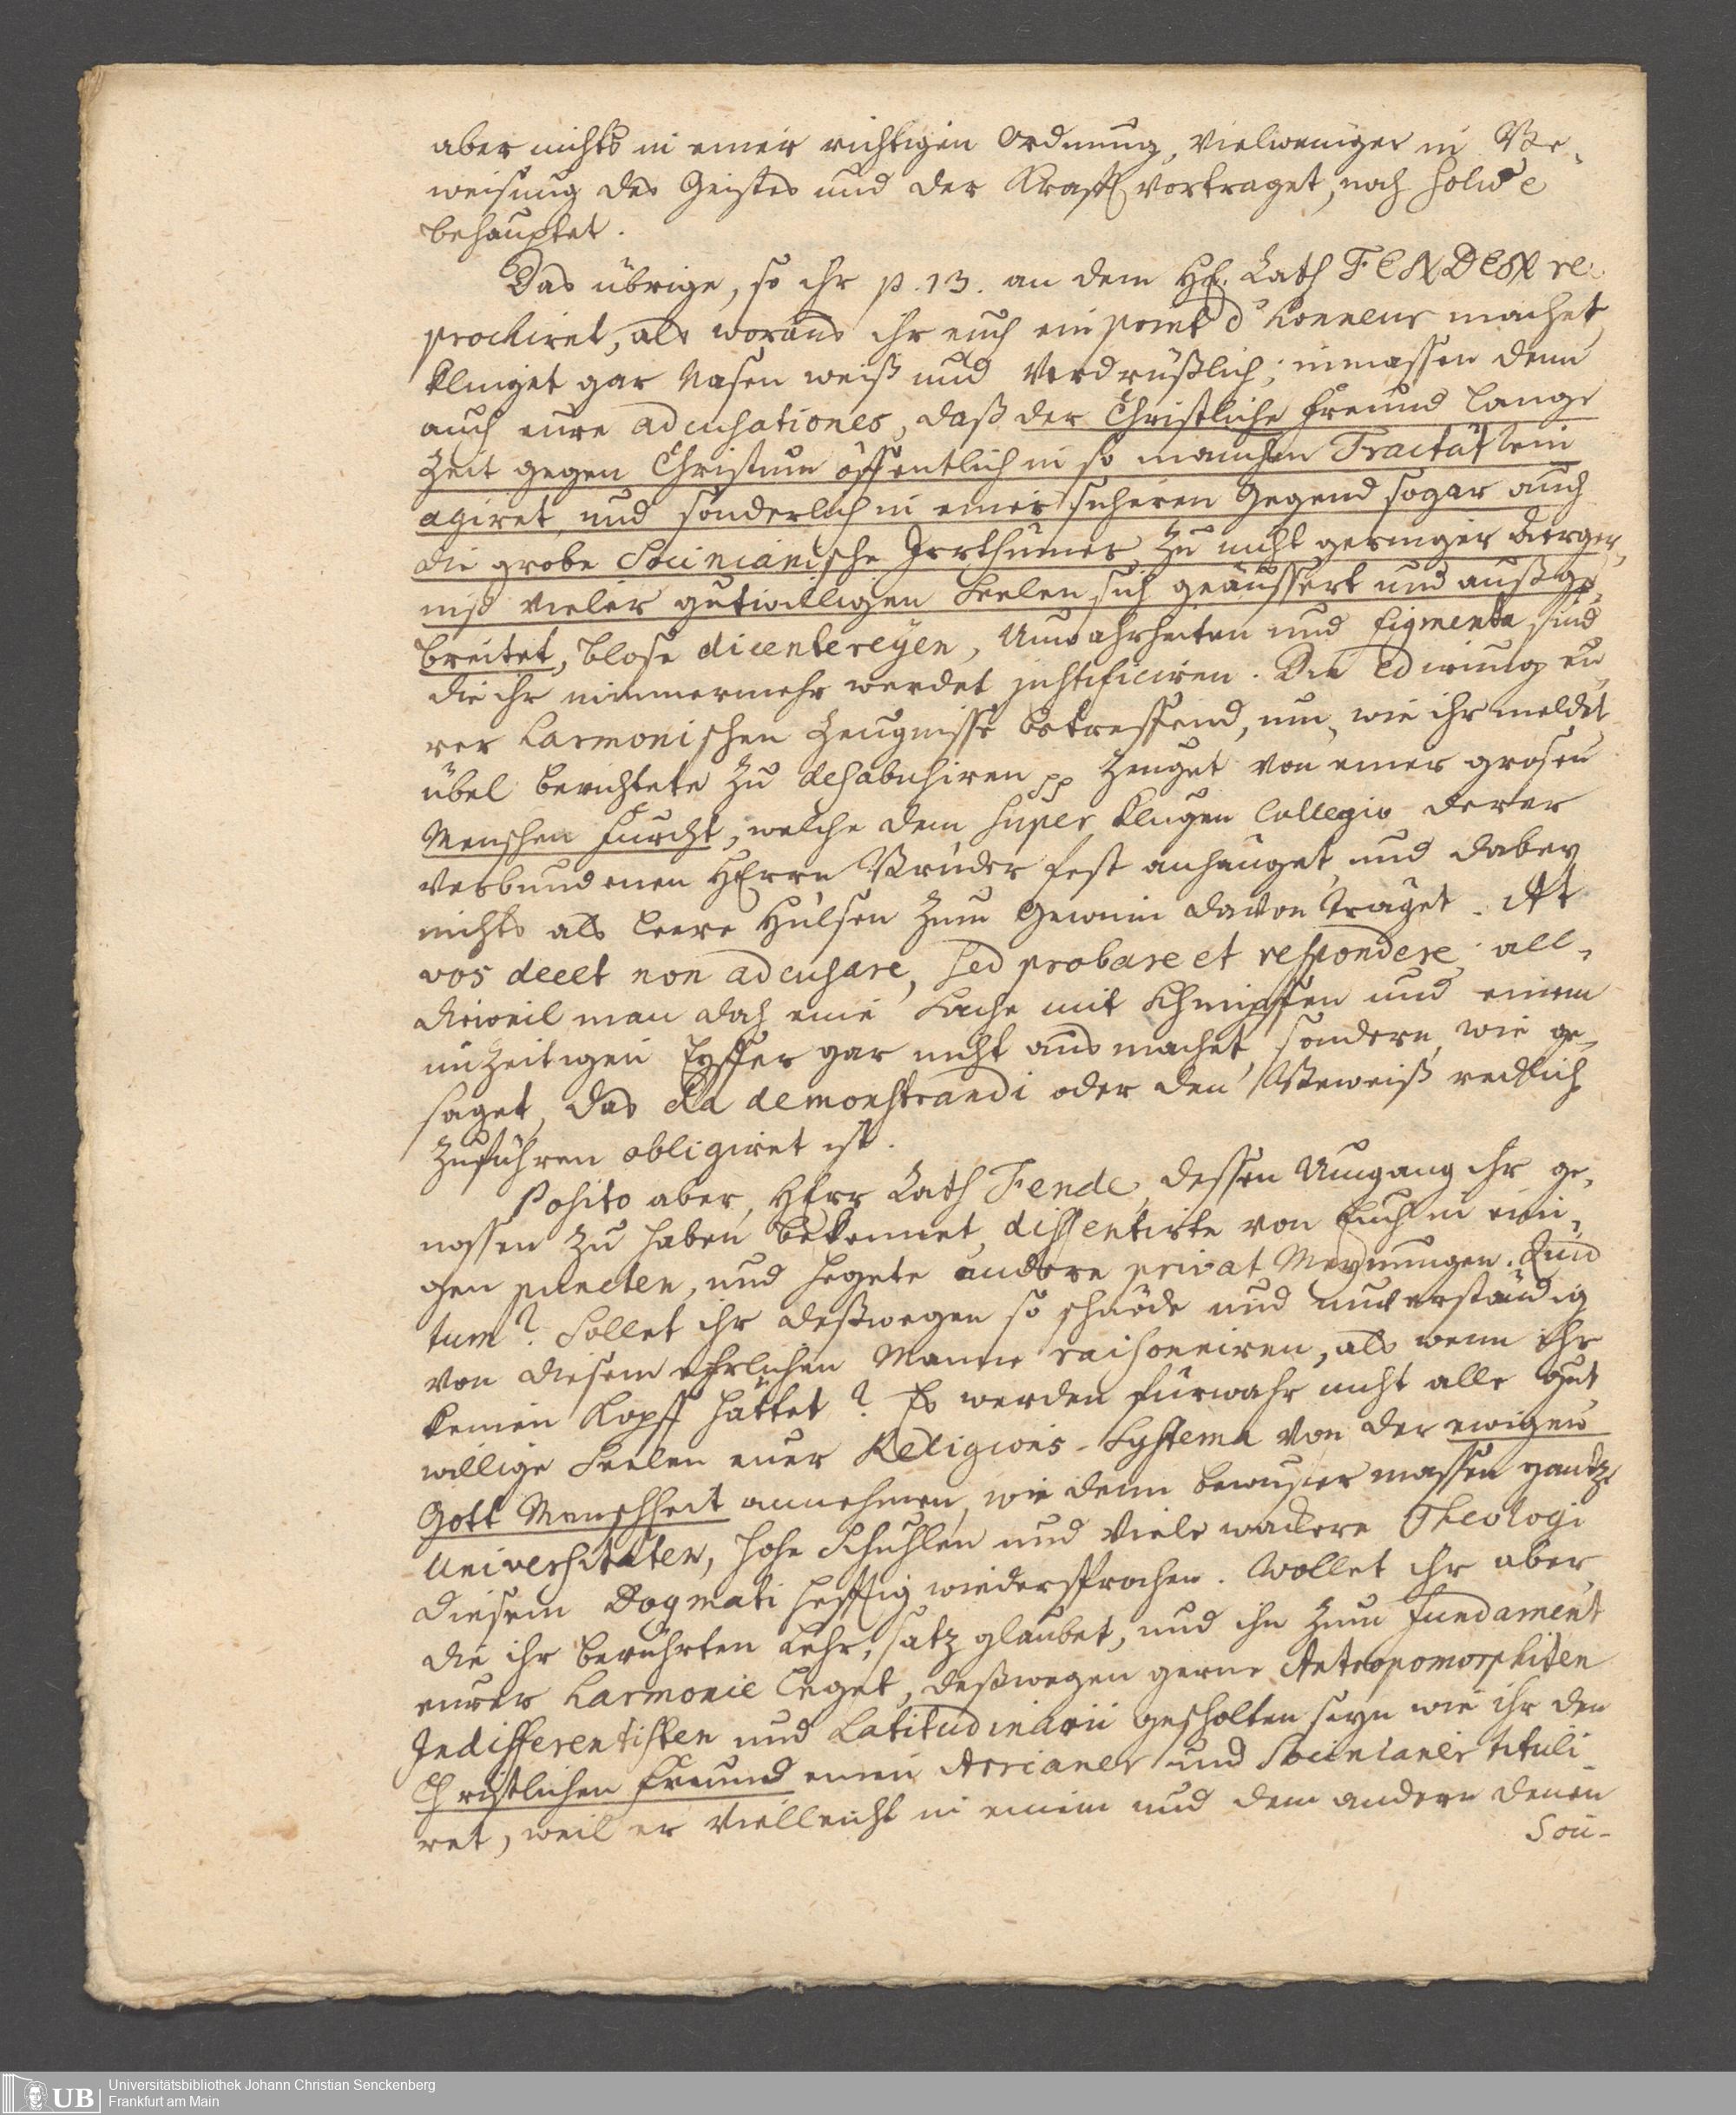 aber nichts in einer richtigen Ordnung, vielweniger in Be-
weisung des Geistes und der Krafft vortraget, noch solide
behauptet.
Das übrige, so ihr p. 13. an dem Hr. Rath FENDEN re-
prochiret, als woraus ihr euch ein point d'honneur machet,
klinget gar Nasen weiß und Verdrüßlich; immassen denn
auch eure adcusationes, daß der Christliche Freund lange
Zeit gegen Christum öffentlich in so manchen Tractätlein
agiret, und sonderlich in einer sicheren Gegend sogar auch
die grobe Socinianische Irrthümer zu nicht geringer Aerger-
niß vieler gutwilligen Seelen sich geäussert und außge-
breitet, blose dicentereyen, Unwahrheiten und figmenta sind
die ihr nimmermehr werdet justificiren. Die Edirung eu-
rer harmonischen Zeugnisse betreffend, um, wie ihr meldet
übel berichtete zu desabusiren pp zeuget von einer grosen
Menschen Furcht, welche dem super klugen Collegio derer
verbundenen HErrn Brüder fest anhanget, und dabey
nichts als leere Hülsen zum Gewinn davon träget. At
vos decet non adcusare, sed probare et respondere; all-
dieweil man doch eine Sache mit Schimpffen und einem
unzeitigen Eyffer gar nicht ausmachet, sondern, wie ge-
saget, das da demonstrandi oder den Beweiß redlich
zuführen obligiret ist.
Posito aber, HErr Rath Fende, dessen Umgang ihr ge-
nossen zu haben bekennet, dissentirte von Euch in eini-
gen puncten, und hegete andere privat Meynungen. Quid
tum? Sollet ihr deßwegen so schnöde und unverständig
von diesem ehrlichen Manne raisonniren, als wenn ihr
keinen Kopff hättet? Es werden fürwahr nicht alle gut
willige Seelen euer Religions-Systema von der ewigen
Gott Menschheit annehmen, wie denn bewuster massen gantze
Universitäten, hohe Schuhlen und viele wackere Theologi
diesem Dogmati hefftig wiedersprochen. Wollet ihr aber,
die ihr berührten Lehr-satz glaubet, und ihn zum Fundament
eurer harmonie leget, deßwegen gerne Antropomorphiten
Indifferentisten und Latitudinarii gescholten seyn wie ihr den
Christlichen Freund einen Arrianer und Socinianer tituli-
ret, weil er vielleicht in einem und dem andern denen
Soci-
Universitätsbibliothek Johann Christian Senckenberg
Frankfurt am Main
UB